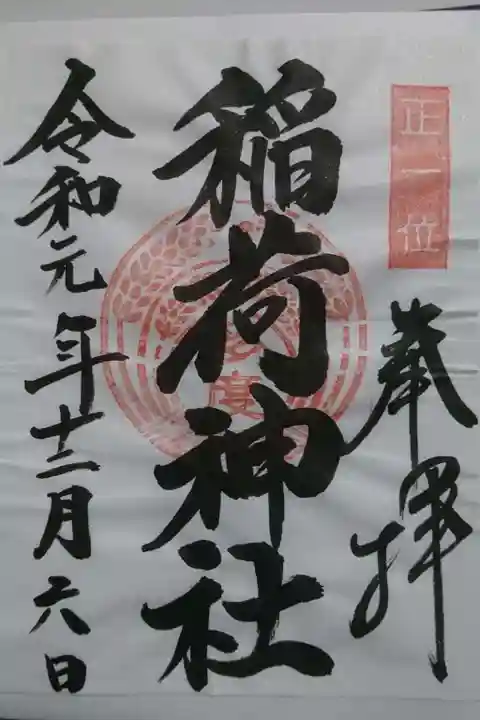 正一位
奉拝
稲荷神社
令和元年十二月六日